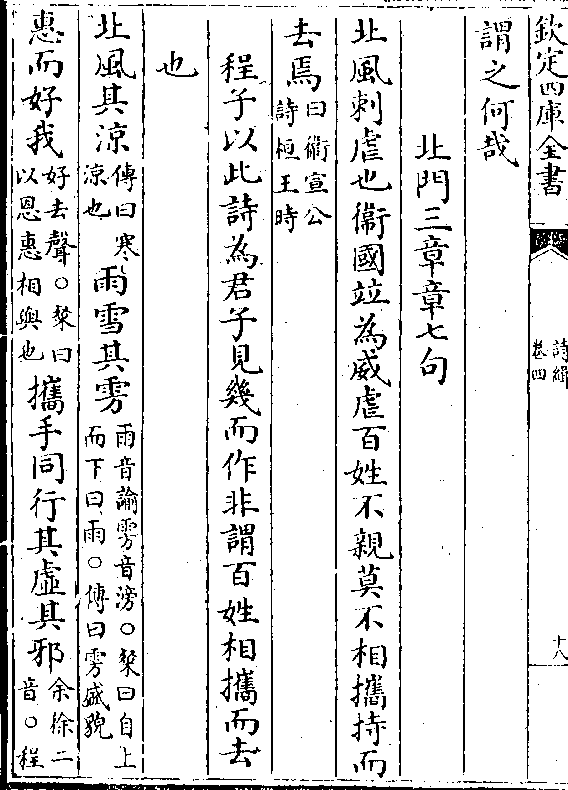 欽定四庫全書
詩緝
卷四
十八
謂之何哉
北門三章章七句
北風刺虐也衞國竝為威虐百姓不親莫不相攜持而
去焉曰衞宣公
詩桓王時
程子以此詩為君子見幾而作非謂百姓相攜而去
也
北風其涼傳曰寒
涼也雨雪其雱雨音諭雱音滂○粲曰自上
而下曰雨○傳曰雱盛貌
惠而好我好去聲○粲曰
以恩惠相與也攜手同行其虛其邪余徐二
音○程